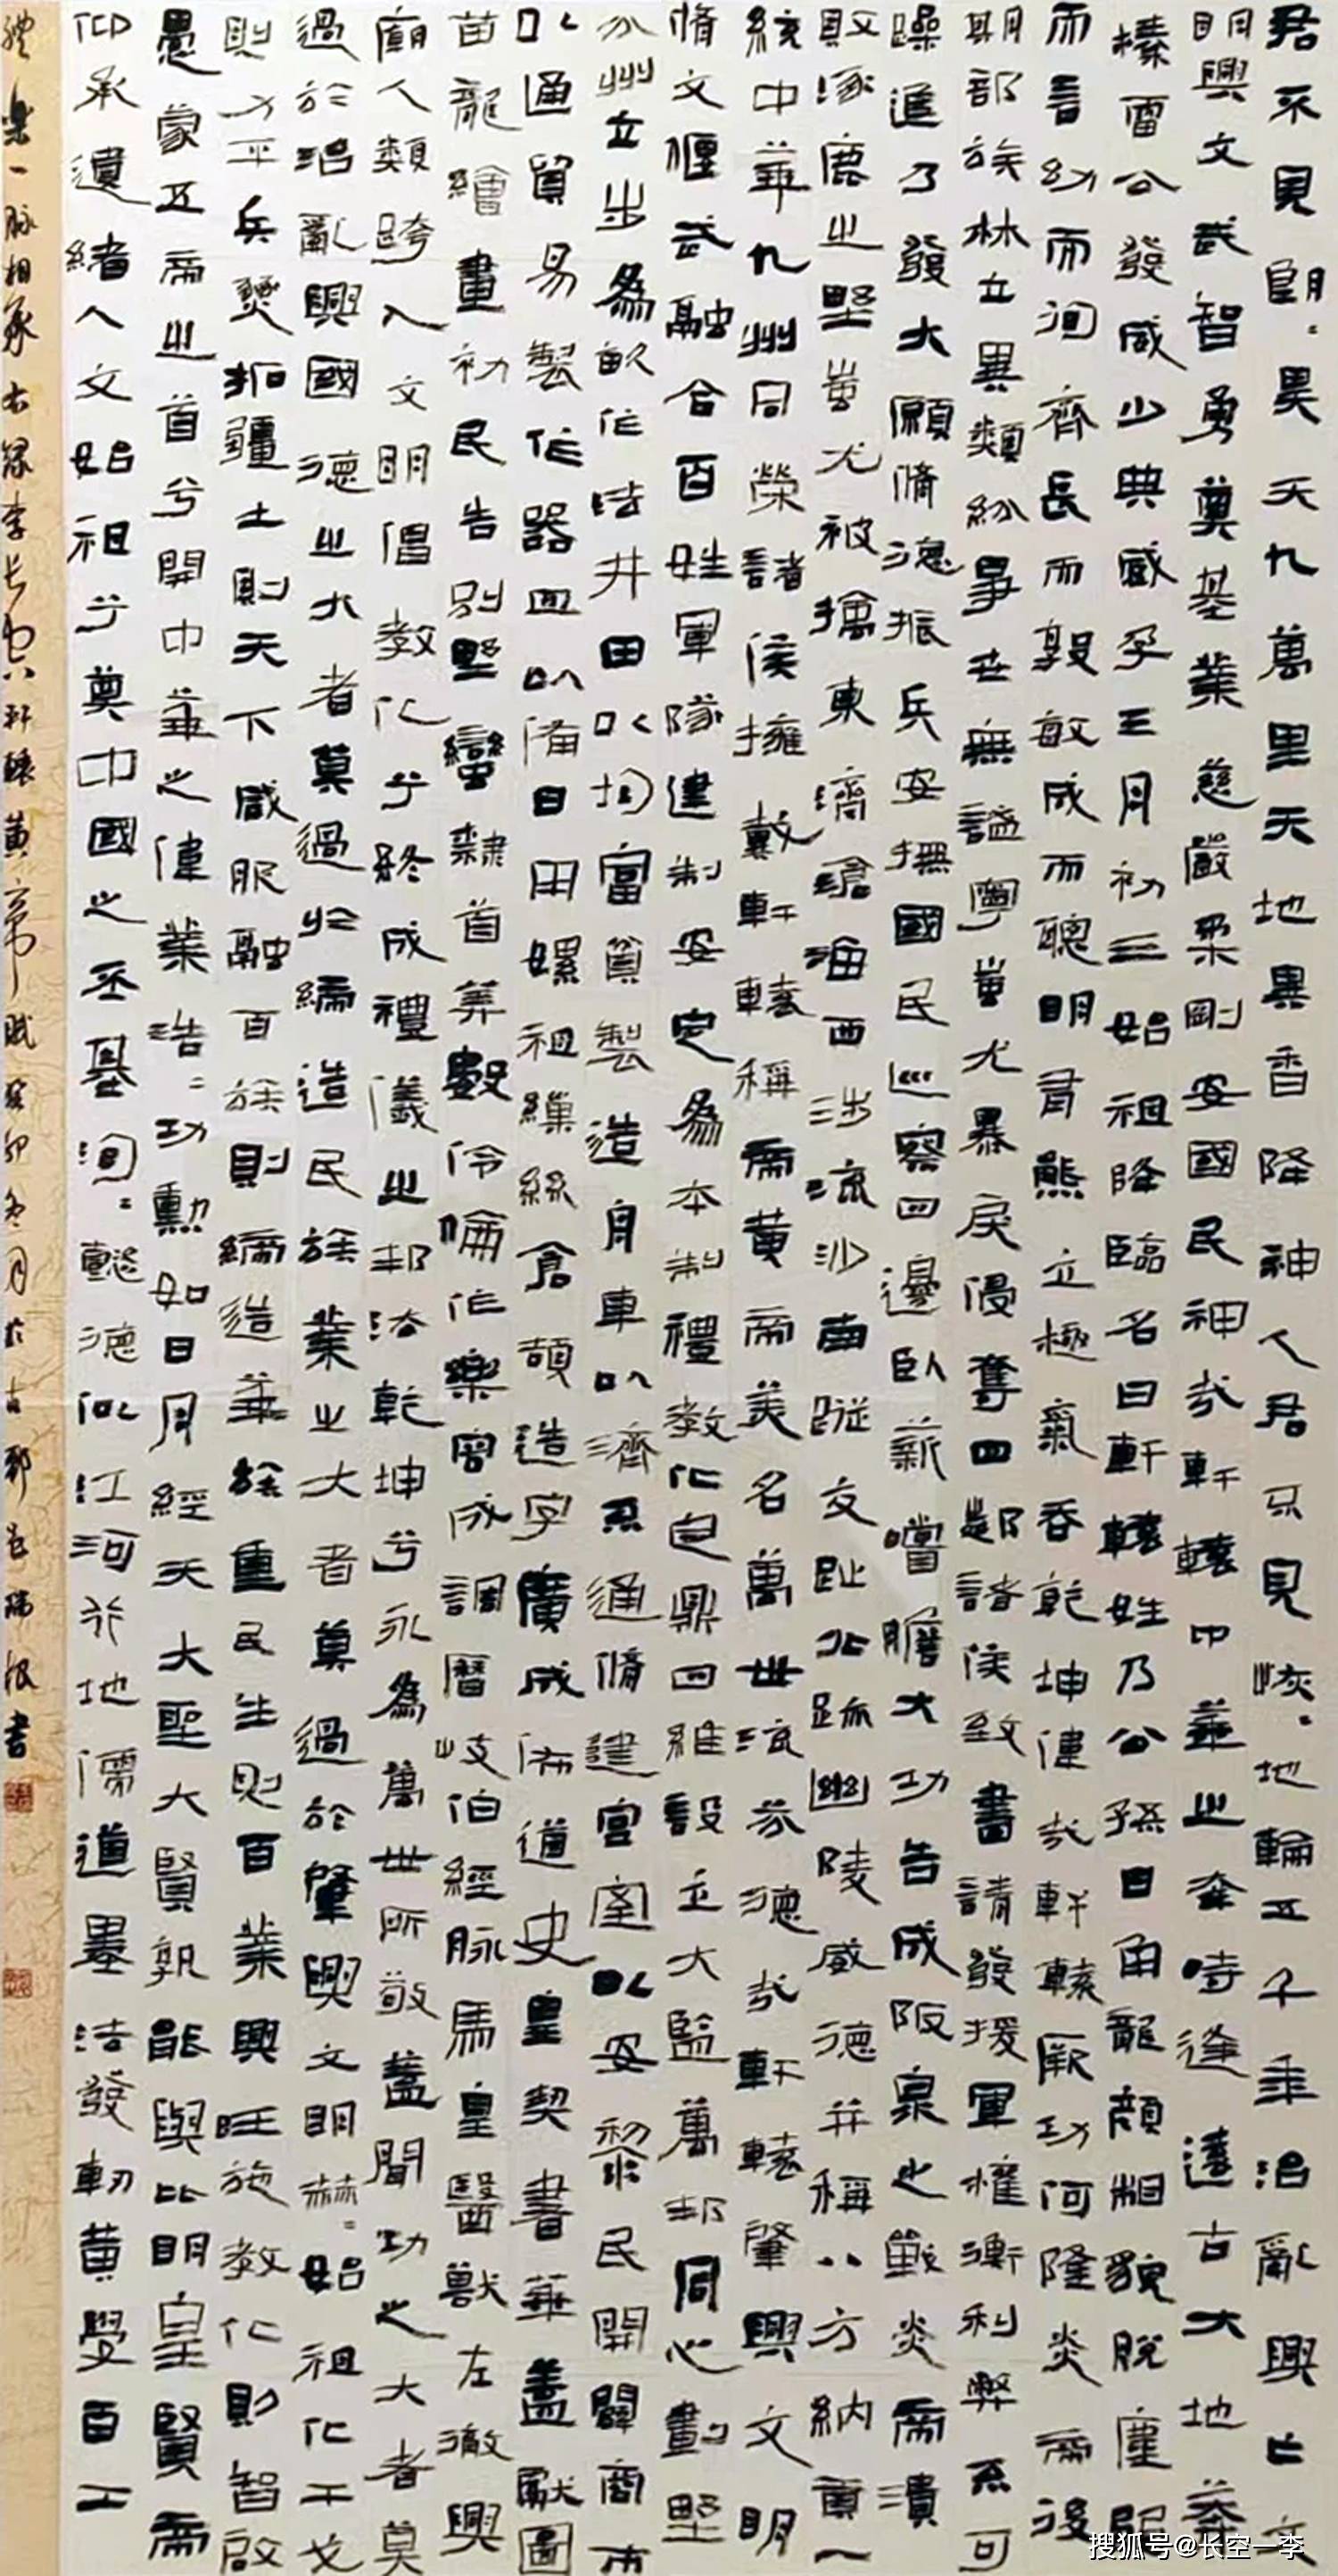 君不見朗〻昊天九萬里天地異香降神人君不見皎〻地輪五千年治亂興亡文
明興文武智勇奠基業慈嚴柔剛安國民神哉軒轅中華之 時逢遠古大地莽
榛雷公發威少典感孕三月初三始祖降臨名曰軒轅姓乃公孫日角龍顏相貌脫塵昭
而言幼而徇齊長而敦敏成而聰明有熊立極氣吞乾坤偉哉軒轅厥功何隆炎帝後
期部族林立異類紛爭世無謐寧蚩尤暴戾侵奪四鄰諸侯致書請發援軍權衡利弊不可
躁進乃發大願脩德振兵安撫國民巡察四邊臥薪嚐膽大功告成阪泉之戰炎帝潰
敗涿鹿之野蚩尤被擒東濟滄海西涉流沙南蹤交趾北跡幽陵威德并稱八方納貢一
統中華九州同榮諸侯擁戴軒轅稱帝黃帝美名萬世流芳德哉軒轅肇興文明
脩文偃武融合百姓軍隊建制安定為本制禮教化包鼎四維設立大監萬邦同心劃野
分州立步為畝作時井田以均富貧製造舟車以濟不通脩建宮室以安黎民開闢商市
以通貿易製作器皿以備日用嫘祖繅絲倉頡造字廣成佈道史皇契書華蓋獻圖
苗龍繪畫初民告別野蠻隸首筭數伶倫作樂容成調曆岐伯經脉馬皇醫獸左徹興
廟人類跨入文明倡教化兮終成禮儀之邦洽乾坤兮永為萬世所敬蓋聞功之大者莫
過於治亂興國德之大者莫過於締造民族業之大者莫過於肇興文明赫〻始祖化干戈
則力平兵燹拓疆土則天下咸服融百族則締造華族重民生則百業興旺施教化則智啟
愚蒙五帝之首兮開中華之偉業浩〻功勳如日月經天大聖大賢孰能與比明皇賢帝
承遺緒人文始祖兮奠中國之丕基洵〻懿德似江河行地儒道墨法發軔黃受百工
禮樂一脉相承右錄李長空軒轅黃帝賦癸卯冬月於古鄴 瑞根書
搜狐号@长空一李